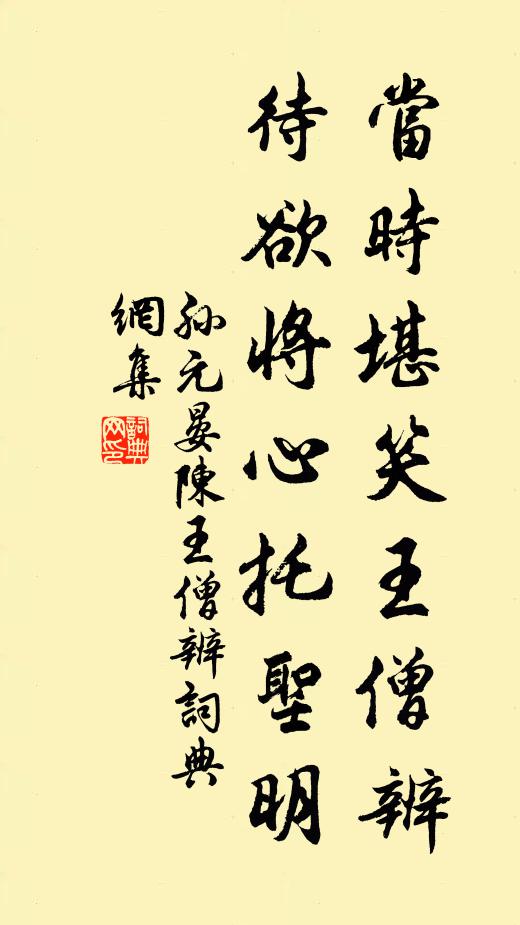 當時堪笑王僧辨
待欲將心托聖明
孙元晏陳王僧辨詞典
網集
詞典网印